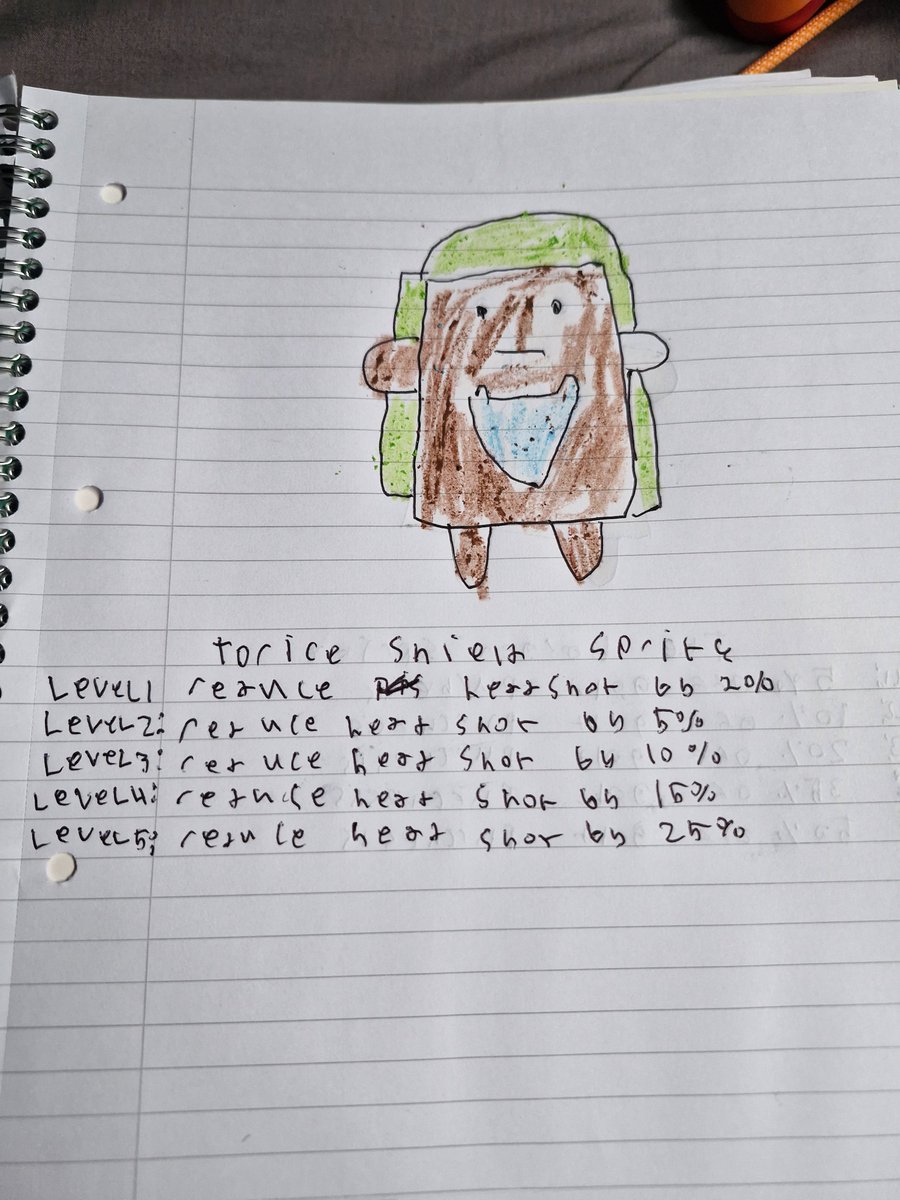 torice shield sprite
Level1 reduce headshot by 20%
Level2: reduce head shot by 5%
Level3: reduce head shot by 10%
Level4: reduce head shot by 15%
Level5: reduce head shot by 25%